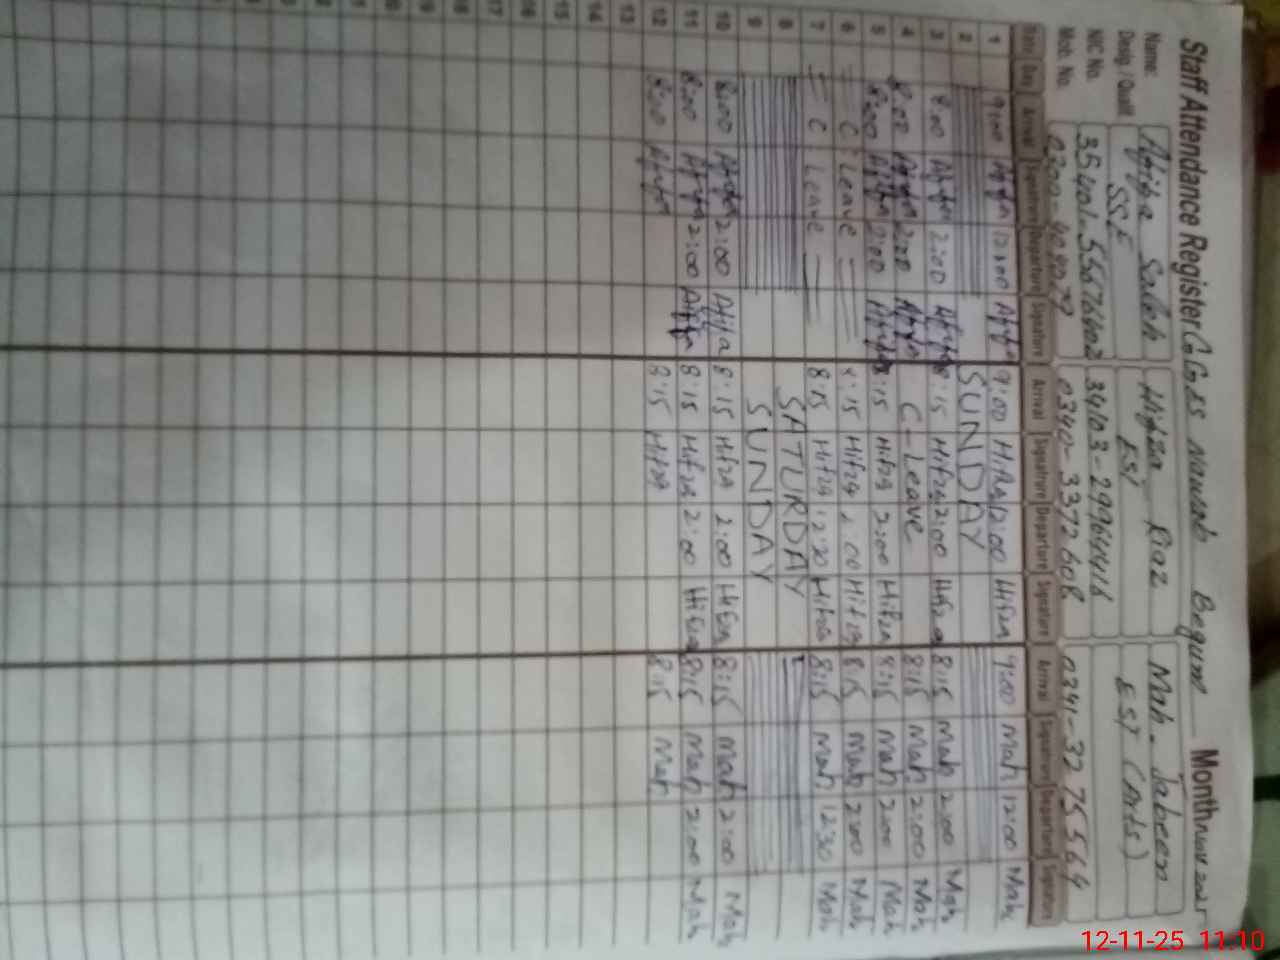 Staff Attendance Register G.G.E.S Nawab Begum Month Nov 2025
Name: Afifa Saleh Hifza Riaz Mah-Jabeen
Desig / Qualif. SSE ESE EST (Arts)
NIC No. 34103-29964416
Mob. No. 0340-3372608 0341-3275564
Date Day Arrival Signature Departure Signature Arrival Signature Departure Signature Arrival Signature Departure Signature
1 9:00 Afifa 12:00 Afifa 9:00 Hifza 12:00 Hifza 9:00 Mah 12:00 Mah
2 SUNDAY
3 8:00 Afifa 2:00 Afifa 8:15 Hifza 2:00 Hifza 8:15 Mah 2:00 Mah
4 8:00 Afifa 2:00 Afifa C-Leave 8:15 Mah 2:00 Mah
5 8:00 Afifa 2:00 Afifa 8:15 Hifza 2:00 Hifza 8:15 Mah 2:00 Mah
6 C Leave 8:15 Hifza 2:00 Hifza 8:15 Mah 2:00 Mah
7 C Leave 8:15 Hifza 12:30 Hifza 8:15 Mah 12:30 Mah
8 SATURDAY
9 SUNDAY
10 8:00 Afifa 2:00 Afifa 8:15 Hifza 2:00 Hifza 8:15 Mah 2:00 Mah
11 8:00 Afifa 2:00 Afifa 8:15 Hifza 2:00 Hifza 8:15 Mah 2:00 Mah
12 8:00 Afifa 8:15 Hifza 8:15 Mah
13
14
15
16
17
18
19
12-11-25 11:10